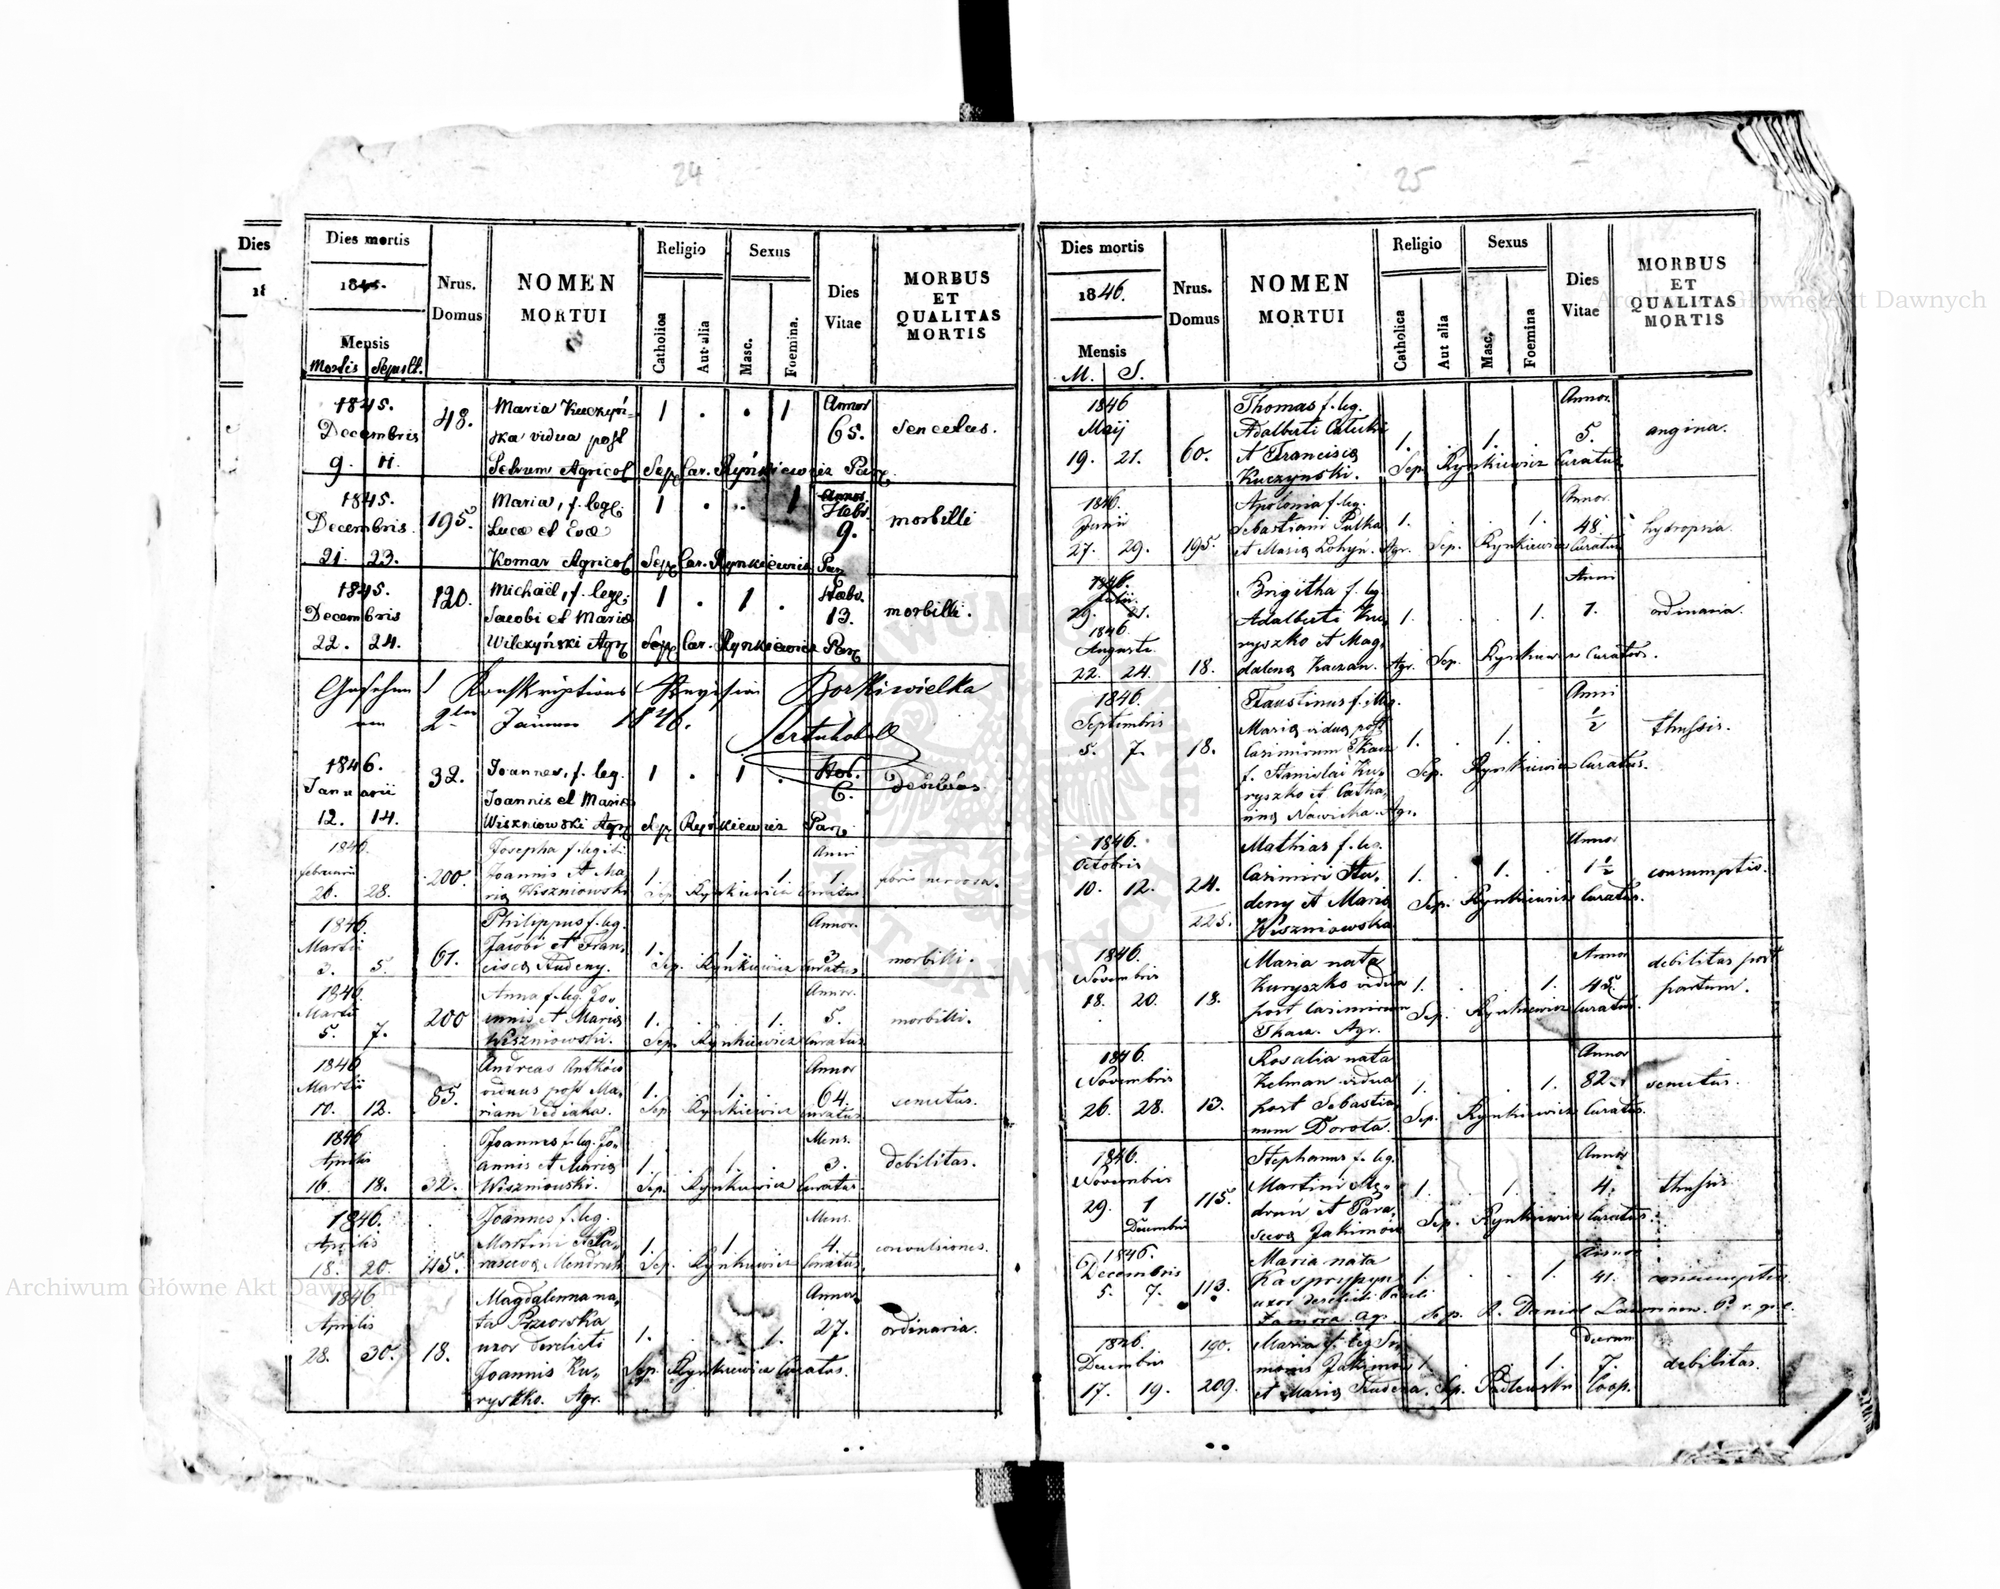 24
Dies mortis
Nrus. Domus
NOMEN MORTUI
Religio
Catholica
Aut alia
Sexus
Masc.
Foemina.
Dies Vitae
MORBUS ET QUALITAS MORTIS
Mensis
Mortis Sepult.
1845. Decembris 9. 11.
48.
Maria Kuczyńs=
ka vidua post
Petrum Agricol
1 . . 1
Annor 65.
Sep. Car. Rynkiewicz Par.
1845. Decembris 21. 23.
195.
Maria, f. leg.
Lucæ et Evæ
Komar Agricol
1 . . 1
Hebd. 9.
morbilli
Sep. Car. Rynkiewicz Par.
1845. Decembris 22. 24.
120.
Michaël, f. leg.
Jacobi et Maria
Wilczyński Agr
1 . 1 .
Hebd. 13.
morbilli.
Sep. Car. Rynkiewicz Par.
Gesehen / Konskriptions Revision Borkiwielka
am 2ten Jänner 1846.
1846. Januarii 12. 14.
32.
Joannes, f. leg.
Joannis et Maria
Wiszniowski Agr
1 . 1 .
Heb. 6.
Debilitas
Sep. Rynkiewicz Par.
1846. februarii 26. 28.
200.
Josepha f. legiti.
Joannis et Ma
ria Wiszniowski
1. . . 1.
Anni 1.
febris nervosa.
Sep. Rynkiewicz Curatus
1846. Martii 3. 5.
61.
Philippus f. leg.
Jacobi et Fran-
cisca Studeny.
1. . 1. .
Annor. 3.
morbilli.
Sep. Rynkiewicz Curatus
1846. Martii 5. 7.
200
Anna f. leg. Jo-
annis et Maria
Wiszniowski.
1. . . 1.
Annor. 5.
morbilli.
Sep. Rynkiewicz Curatus
1846 Martii 10. 12.
85.
Andreas Anthów
viduus post Ma-
riam
1. . 1. .
Annor 64.
senectus.
Sep. Rynkiewicz Curatus
1846 Aprilis 16. 18.
32.
Joannes f. leg. Jo-
annis et Maria
Wiszniowski.
1. . 1. .
Mens. 3.
debilitas.
Sep. Rynkiewicz Curatus.
1846. Aprilis 18. 20.
45.
Joannes f. leg.
Martini et Pa-
rasceva Mendruń
1. . 1 .
Mens. 4.
convulsiones.
Sep. Rynkiewicz Curatus.
1846 Aprilis 28. 30.
18.
Magdalenna na-
ta Pziorska
uxor derelicti
Joannis Ku-
ryszko. Agr.
1. . . 1.
Annor 27.
ordinaria.
Sep. Rynkiewicz Curatus.
25
Dies mortis
1846.
Mensis
M. S.
Nrus. Domus
NOMEN MORTUI
Religio
Catholica
Aut alia
Sexus
Masc.
Foemina
Dies Vitae
MORBUS ET QUALITAS MORTIS
1846 Maij 19. 21.
60.
Thomas f. leg.
Adalberti
et Francisca
Kuczynski.
1. . 1. .
Annor. 5.
angina.
Sep. Rynkiewicz Curatus
1846. Junii 27. 29.
195.
Apolonia f. leg.
Sebastiani Pulka
et Maria Łohyń. Agr.
1. . . 1.
Annor. 48.
hydropsia.
Sep. Rynkiewicz Curatus
1846. Julii. 29. 21.
1846. Augusti. 22. 24.
18.
Brigitha f. leg.
Adalberti Ku
ryszko et Mag-
dalena Kaczan. Agr.
1. . . 1.
Anni 1.
ordinaria.
Sep. Rynkiewicz Curatus.
1846. Septembris 5. 7.
18.
Faustinus f. illeg.
Maria vidua post
Casimirum Tkacz
f. Stanislai Ku-
ryszko et Catha-
rina Nawicka. Agr.
1. . 1. .
Anni ½
thussis.
Sep. Rynkiewicz Curatus.
1846. Octobris 10. 12.
24.
225.
Mathias f. leg.
Casimiri Stu-
deny et Maria
Wiszniowska
1. . 1. .
Annor 1½
consumptio.
Sep. Rynkiewicz Curatus.
1846. Novembris 18. 20.
18.
Maria nata
Kuryszko vidua
post Casimirum
Tkacz. Agr.
1. . . 1.
Annor 45.
debilitas post
partum.
Sep. Rynkiewicz Curatus.
1846. Novembris 26. 28.
13.
Rosalia nata
Kelman vidua
post Sebastia-
num Dorota.
1. . . 1.
Annor 82.
senectus.
Sep. Rynkiewicz Curatus.
1846. Novembris 29. 1 Decembris
115.
Stephanus f. leg.
Martini Me-
druń et Para-
sceva Jakimów
1. . 1. .
Annor 4.
thussis
Sep. Rynkiewicz Curatus.
1846. Decembris 5. 7.
113.
Maria nata
uxor derelicti
Zamora Agr.
1. . . 1.
Annor 41.
consumptio.
Sep. R. Daniel
1846. Decembris 17. 19.
190.
209.
Maria f. leg. Si-
monis Jakimów
et Maria Studena.
1. . . 1.
dierum 7.
debilitas.
Sep. Coop.
Archiwum Główne Akt Dawnych
Archiwum Główne Akt Dawnych